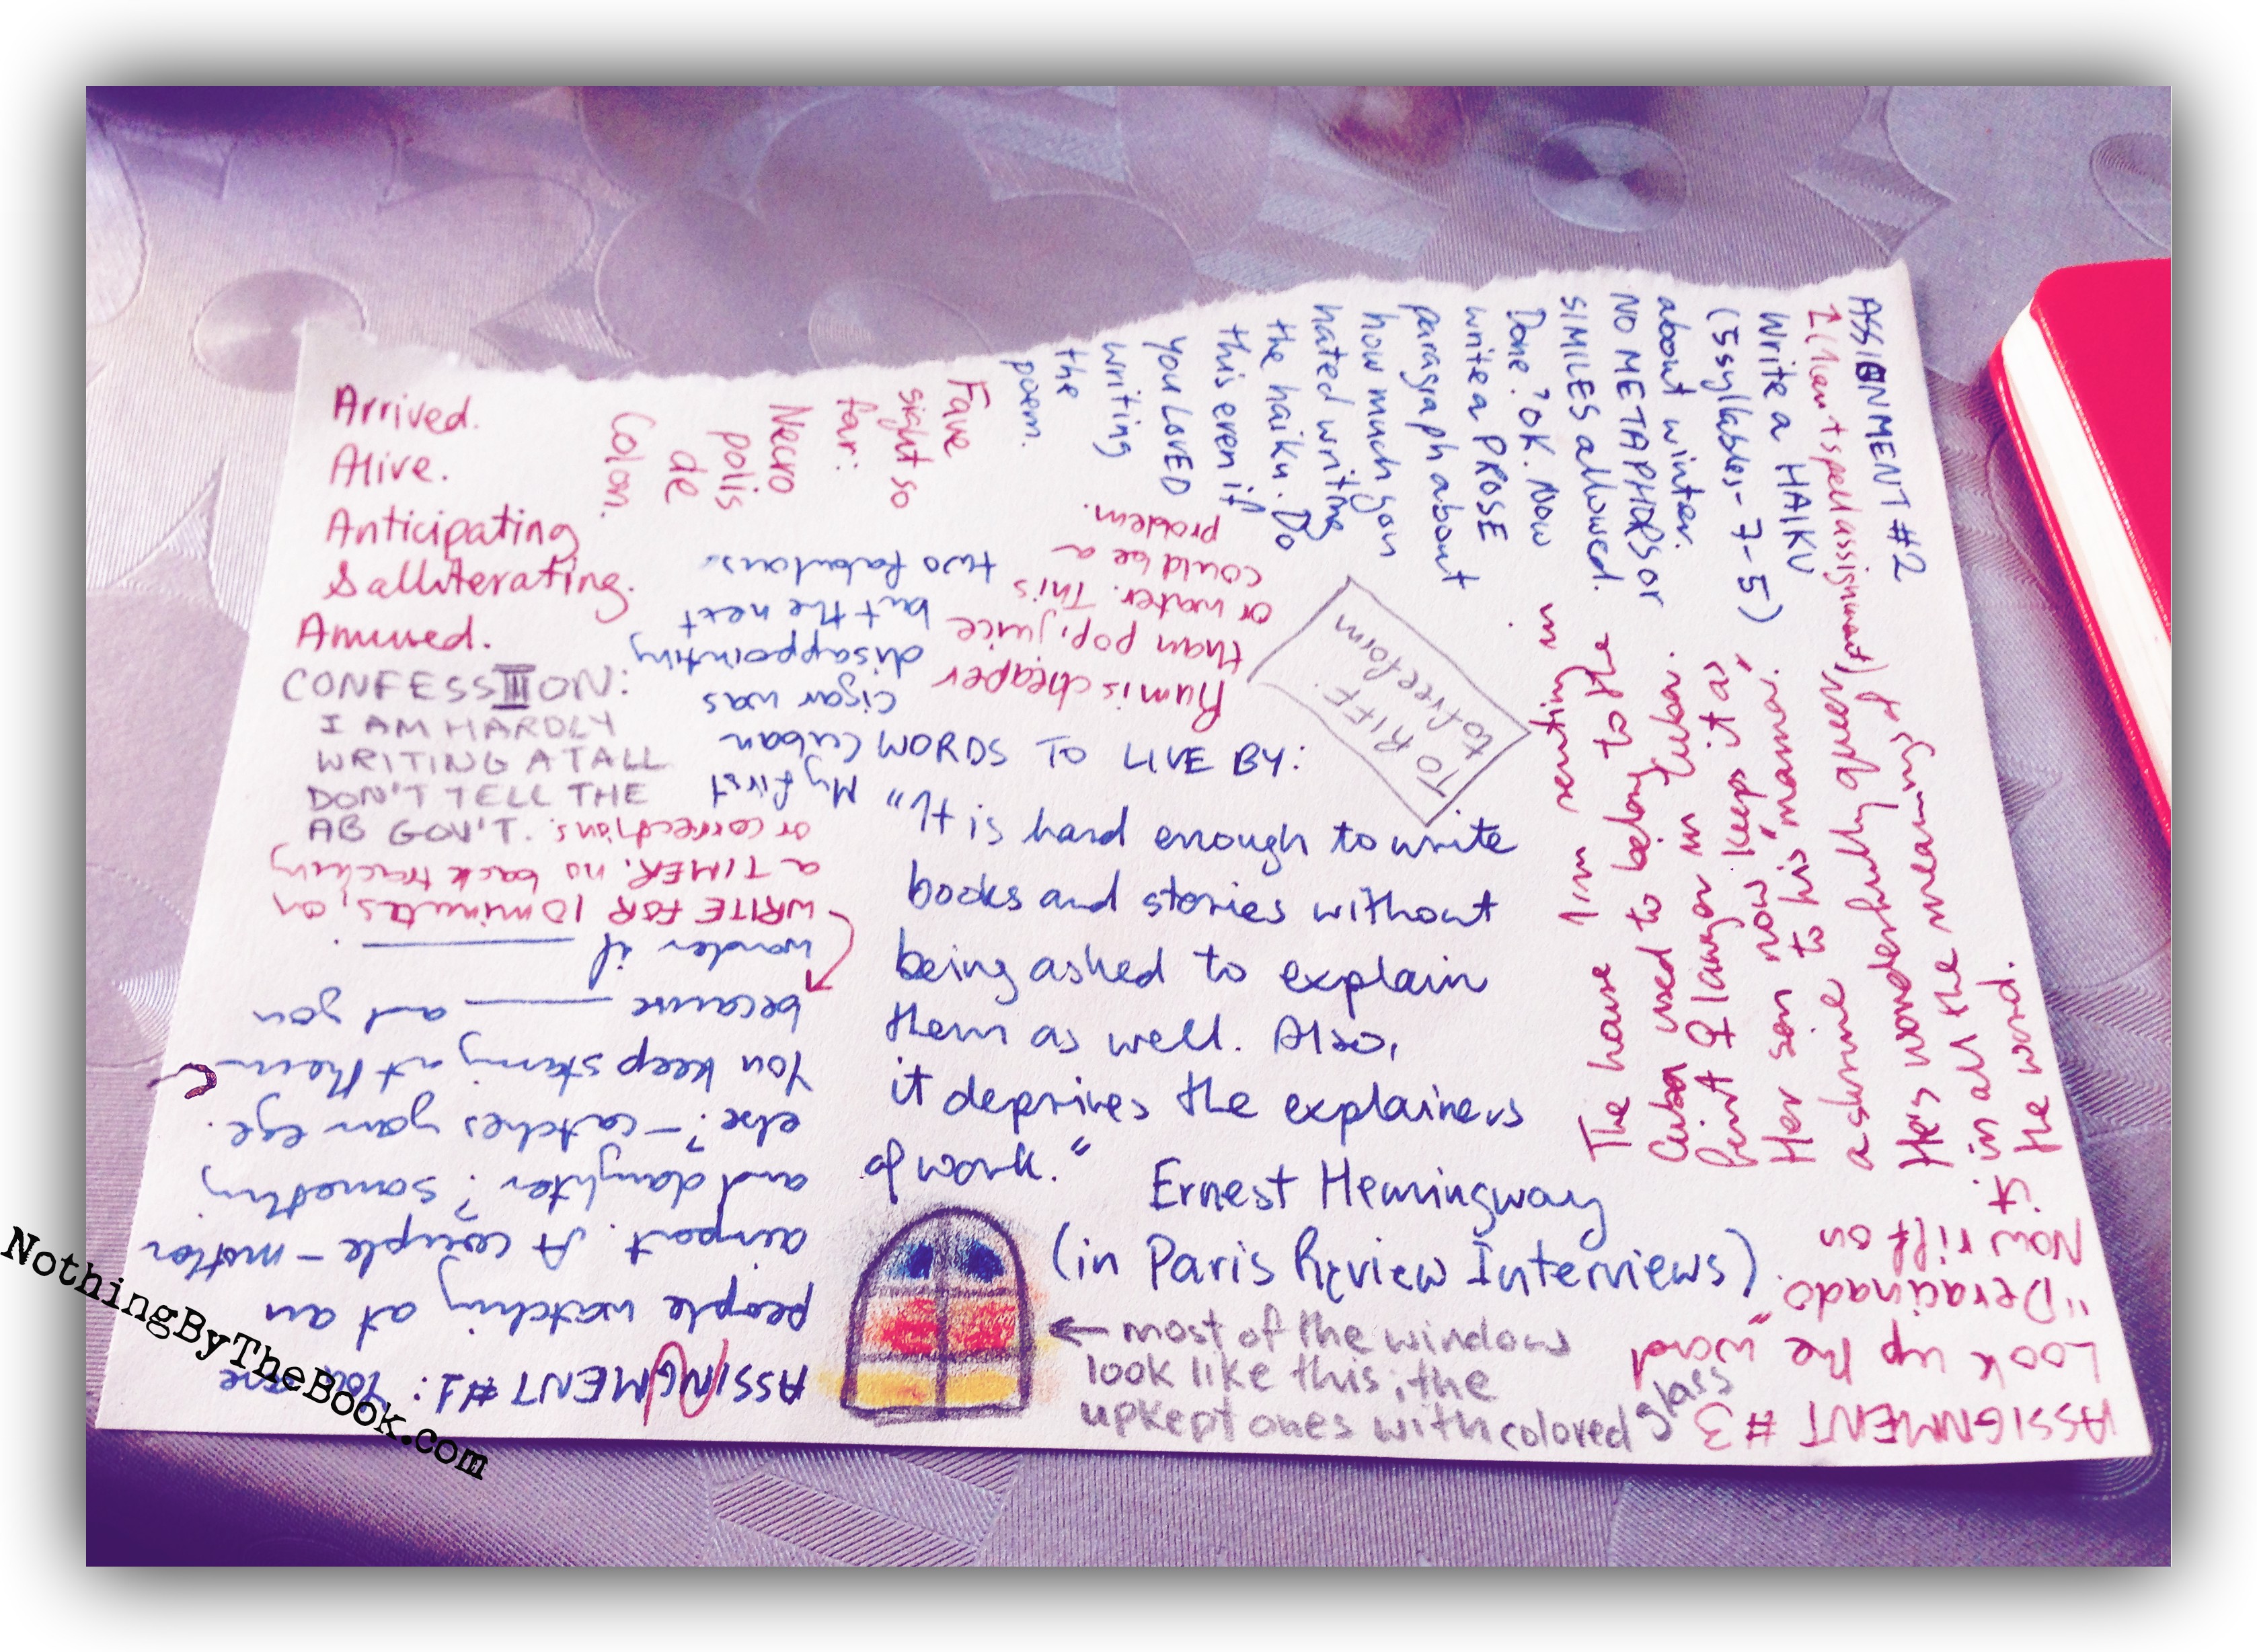 Arrived.
Alive.
Anticipating
Salliterating.
Amused.
CONFESSIION:
I AM HARDLY
WRITING AT ALL
DON'T TELL THE
AB GOV'T.
Fave
sight so
far:
Necro
polis
de
Colon.
ASSIGNMENT #2
Write a HAIKU
(5 syllables-7-5)
about winter.
NO METAPHORS or
SIMILES allowed.
Done? OK. Now
write a PROSE
paragraph about
how much you
hated writing
the haiku. Do
this even if
you LOVED
writing
the
poem.
Rum is cheaper
than pop, juice
or water. This
could be a
problem.
My first
Cuban
cigar was
disappointing
but the next
two fabulous.
TO RIFF:
to freeform
WORDS TO LIVE BY:
"It is hard enough to write
books and stories without
being asked to explain
them as well. Also,
it deprives the explainers
of work."
Ernest Hemingway
(in Paris Review Interviews)
← most of the window
look like this; the
upkept ones with colored glass
ASSINGMENT #1: You are
people watching at an
airport. A couple - mother
and daughter? something
else? - catches your eye.
You keep staring at them
because ______ and you
wonder if ______.
WRITE FOR 10 minutes, on
a TIMER, no back tracking
or corrections.
The house I'm renting in
Cuba used to belong to the
first lawyer in Cuba.
Her son now keeps it as
a shrine to his "mamma".
He's wonderfully queer,
in all the meanings of
the word.
ASSIGNMENT #3
Look up the word
"Deracinado."
Now riff on
it.
NothingByTheBook.com